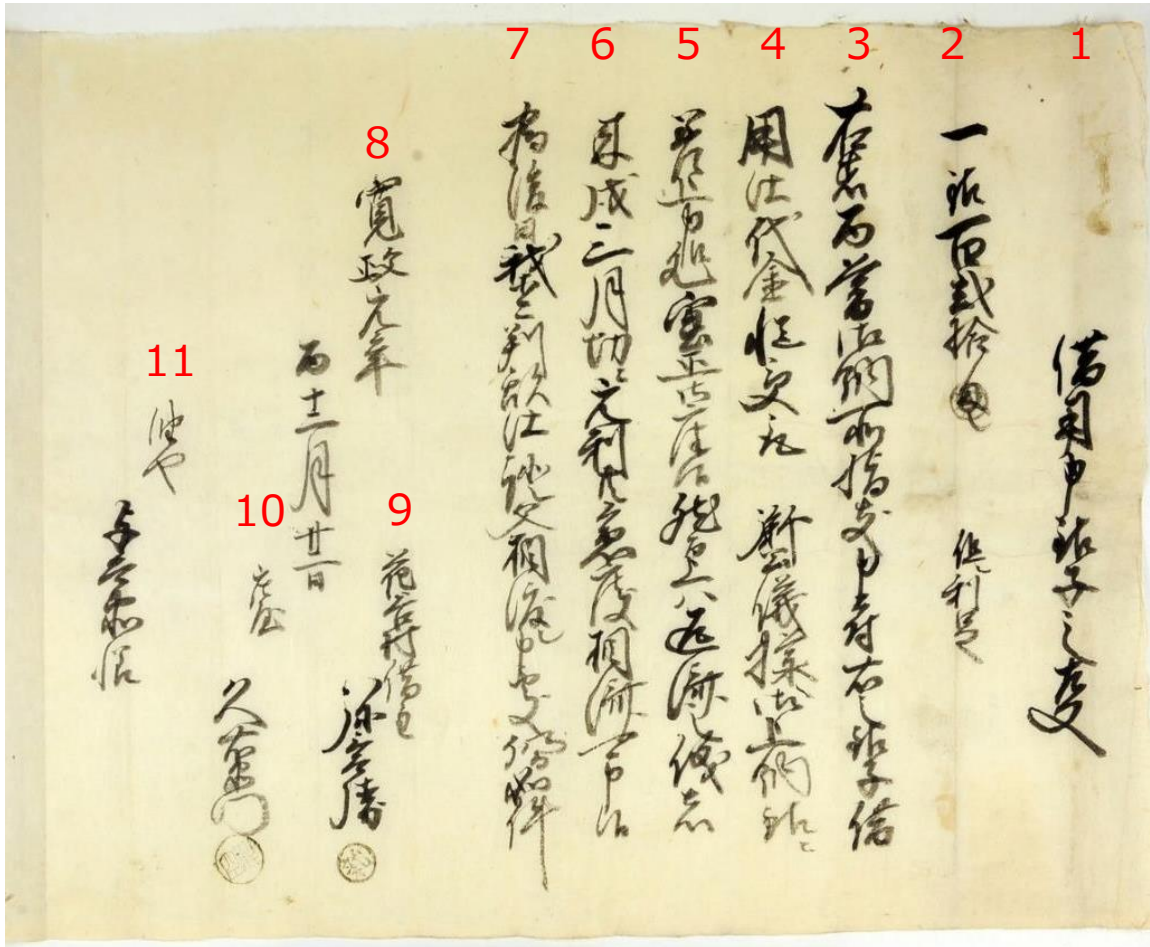 1
借用申銀子之事
2
一銀百弐拾匁 但利足
3
右者酉蔵御納所指支申ニ付右之銀子借
4
用仕代金慥受取 御公儀様御上納銀ニ
5
差上申処実正ニ御座候 然上ハ返済之儀者
6
来戌三月切ニ元利共急度相済可申候
7
為後日 判 仕証文相渡申処仍如件
8
寛政元年
酉十二月廿一日
9
村借主
10
庄屋
久右衛門
11
油や
与兵衛殿